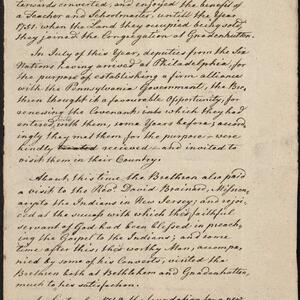 terwards converted, and enjoyed the benefit of
a Teacher and Schoolmaster, untill the Year
1751. when the Land they occupied being sold,
they joined the Congregation at Gnadenhutten.
In July of this Year, deputies from the Six
Nations having arrived at Philadelphia, for
the purpose of establishing a firm alliance
with the Pennsylvania Government, the Bre,
thren thought it a favourable Opportunity, for
renewing the Covenant into which they had
entered with them, some Years before; accor,
ingly they met them for the purpose & were
kindly treated received and invited to
visit them in their Country.
About this time the Brethren also paid
a visit to the Revd. David Brainerd, Mission,
ary to the Indians in New Jersey; and rejoi,
ced at the success with which this faithful
servant of God had been blessed in preach,
ing the Gospel to the Indians; and some
time after this, this worthy Man, accompa,
nied by some of his Converts, visited the
Brethren both at Bethlehem and Gnadenhutten,
much to her satisfaction.